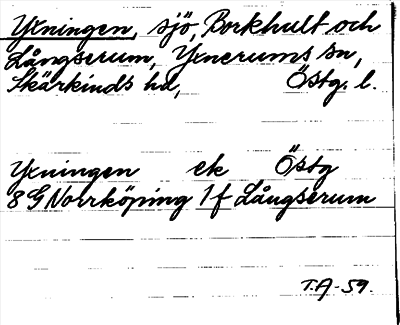 Yxningen, sjö, Borkhult och
Långserum, Yxnerums sn,
Skärkinds hd, Östg. l.
Yxningen ek Östg
8 G Norrköping 1f Långserum
T.A-59.